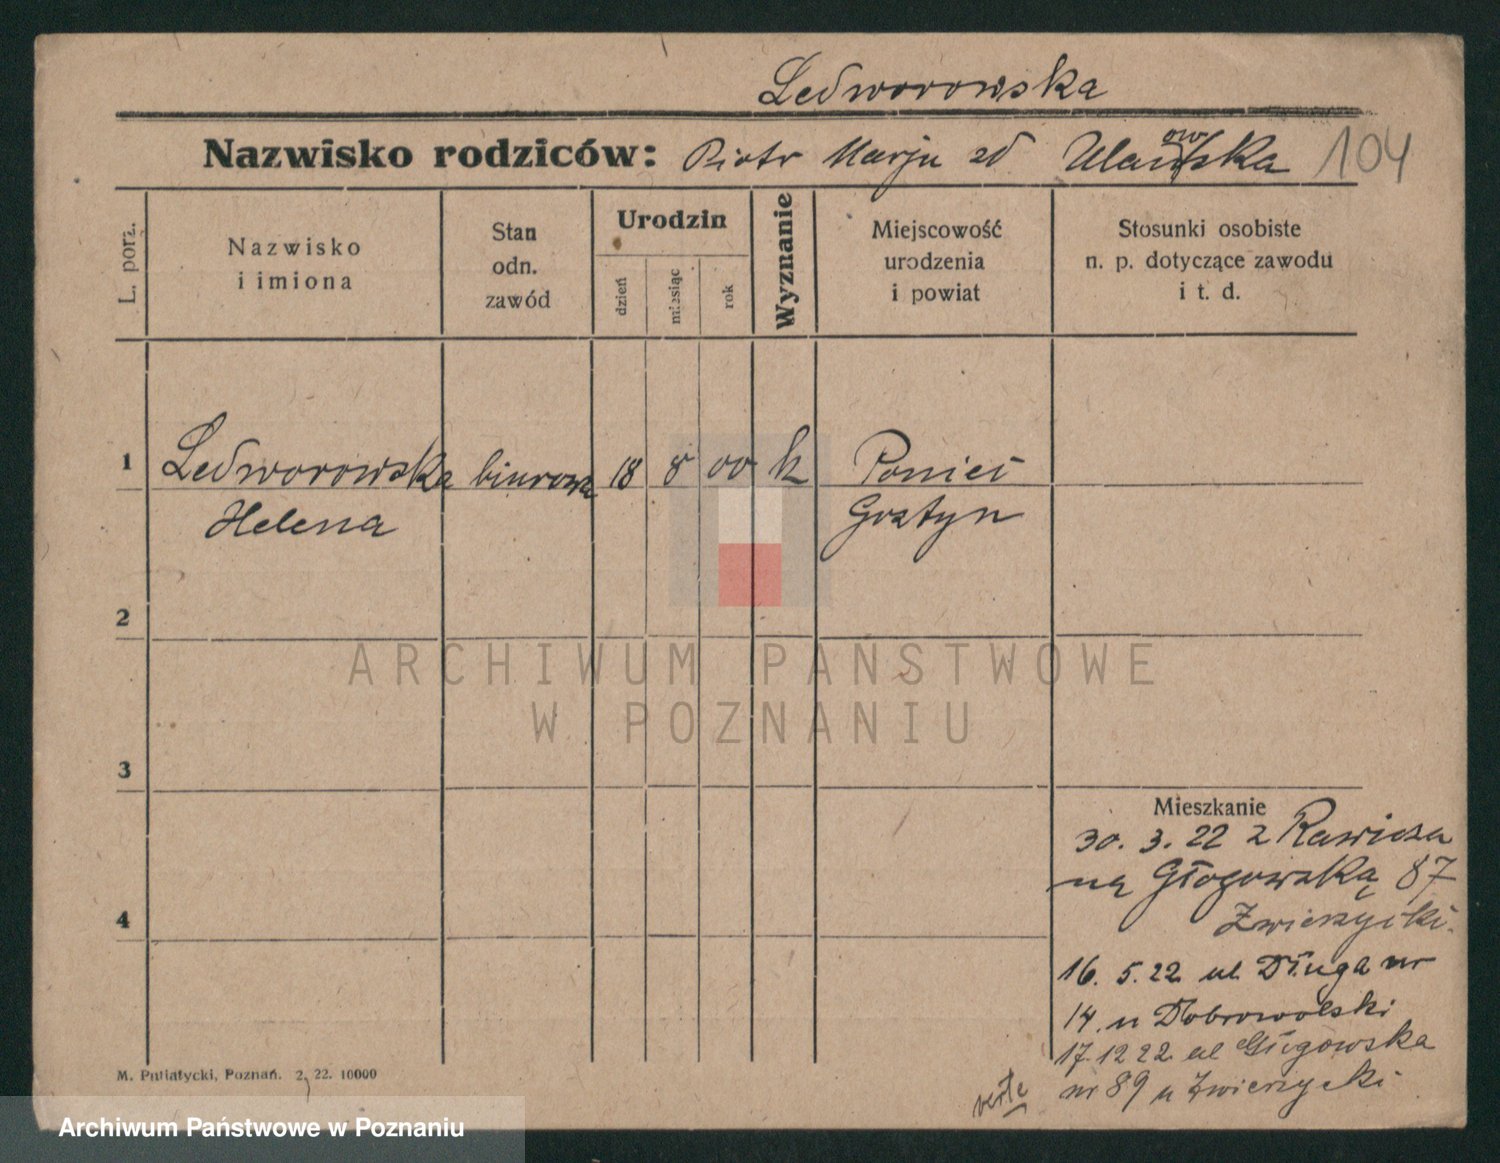 Ledworowska
Nazwisko rodziców: Piotr Marja zd Ulanowska 104
L. porz.
Nazwisko
i imiona
Stan
odn.
zawód
Urodzin
dzień
miesiąc
rok
Wyznanie
Miejscowość
urodzenia
i powiat
Stosunki osobiste
n. p. dotyczące zawodu
i t. d.
1 Ledworowska biurowa 18 8 00 k Poniec
Helena Gostyn
2
ARCHIWUM PAŃSTWOWE
W POZNANIU
3
Mieszkanie
30. 3. 22 z Rawicza
na Głogowską 87
Zwierzycki.
4
16. 5. 22 ul Długa nr
14. u Dobrowolski
17.12 22 ul Głogowska
nr 89 u Zwierzycki
verte
M. Putiatycki, Poznań. 2, 22. 10000
Archiwum Państwowe w Poznaniu